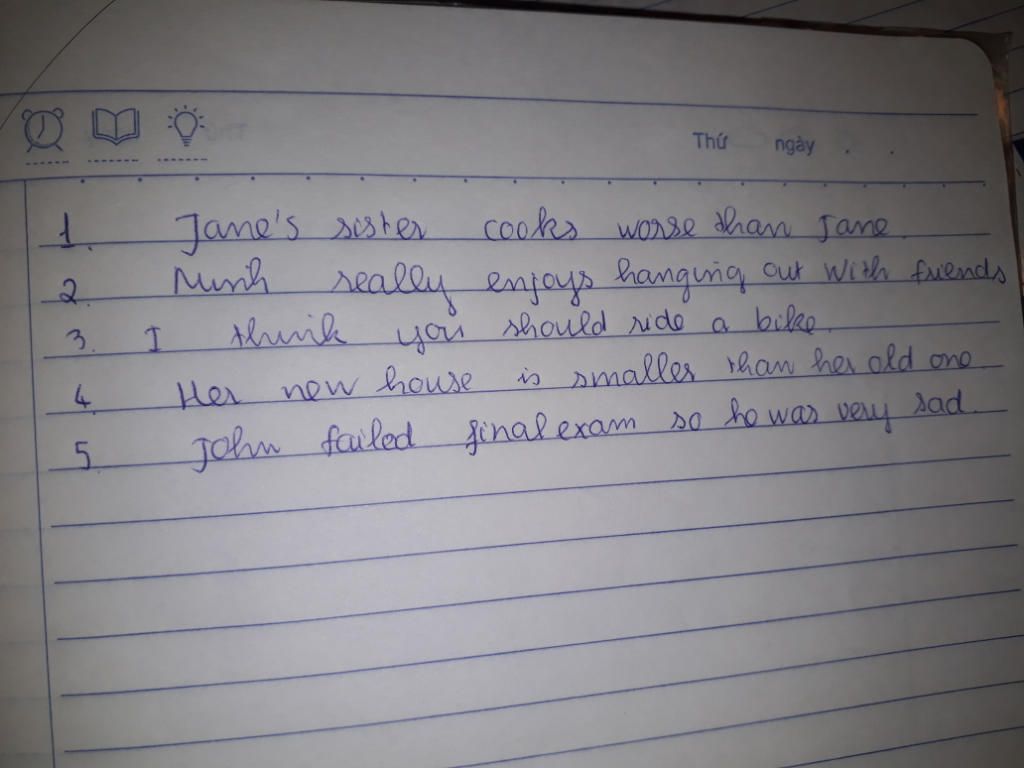 Thứ ngày . .
1. Jane's sister cooks worse than Jane.
2. Minh really enjoys hanging out with friends
3. I think you should ride a bike.
4. Her new house is smaller than her old one.
5. John failed final exam so he was very sad.